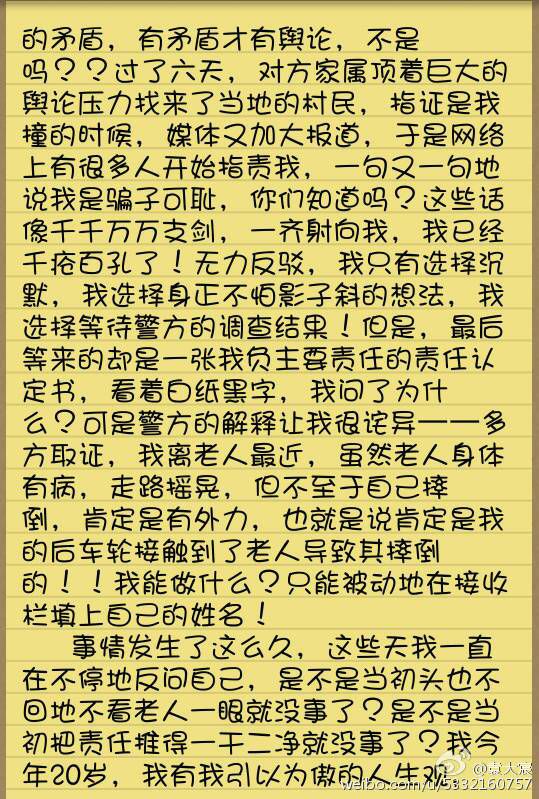 的矛盾，有矛盾才有舆论，不是
吗？？过了六天，对方家属顶着巨大的
舆论压力找来了当地的村民，指证是我
撞的时候，媒体又加大报道，于是网络
上有很多人开始指责我，一句又一句地
说我是骗子可耻，你们知道吗？这些话
像千千万万支剑，一齐射向我，我已经
千疮百孔了！无力反驳，我只有选择沉
默，我选择身正不怕影子斜的想法，我
选择等待警方的调查结果！但是，最后
等来的却是一张我负主要责任的责任认
定书，看着白纸黑字，我问了为什
么？可是警方的解释让我很诧异——多
方取证，我离老人最近，虽然老人身体
有病，走路摇晃，但不至于自己摔
倒，肯定是有外力，也就是说肯定是我
的后车轮接触到了老人导致其摔倒
的！！我能做什么？只能被动地在接收
栏填上自己的姓名！
事情发生了这么久，这些天我一直
在不停地反问自己，是不是当初头也不
回地不看老人一眼就没事了？是不是当
初把责任推得一干二净就没事了？我今
年20岁，我有我引以为傲的人生观
@袁大宸
weibo.com/u/5332160757